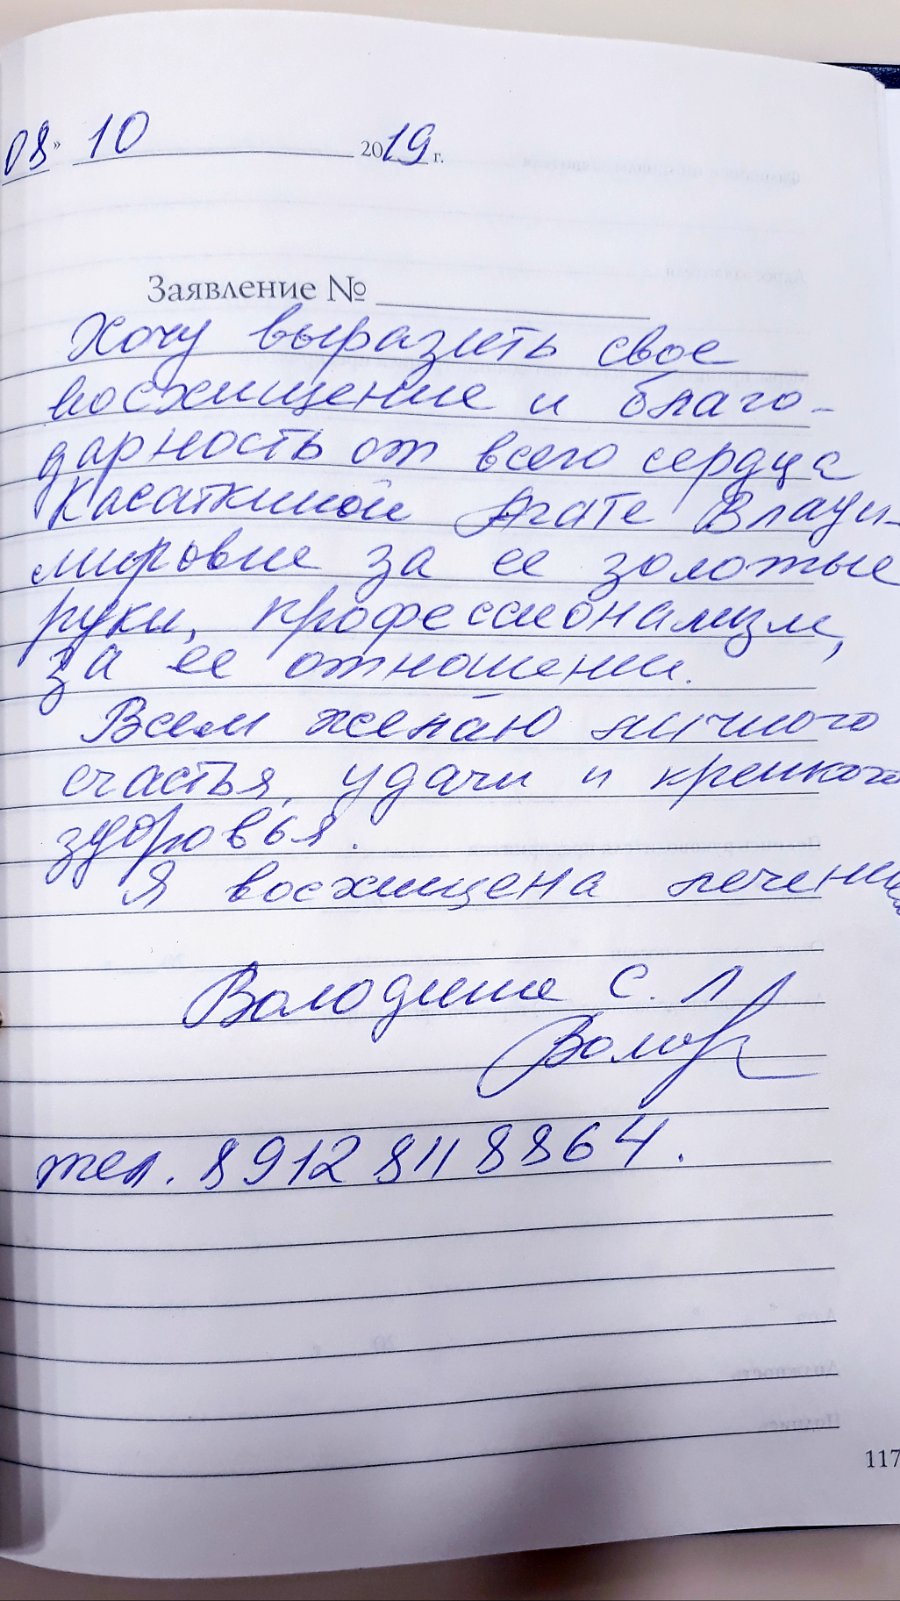 08» 10 2019 г.
Заявление №
Хочу выразить свое
восхищение и благо-
дарность от всего сердца
Касаткиной Агате Влади-
мировне за ее золотые
руки, профессионализм,
за ее отношении.
Всем желаю личного
счастья, удачи и крепкого
здоровья.
Я восхищена лечением
Володина С. Л
тел. 8912 811 8864.
117